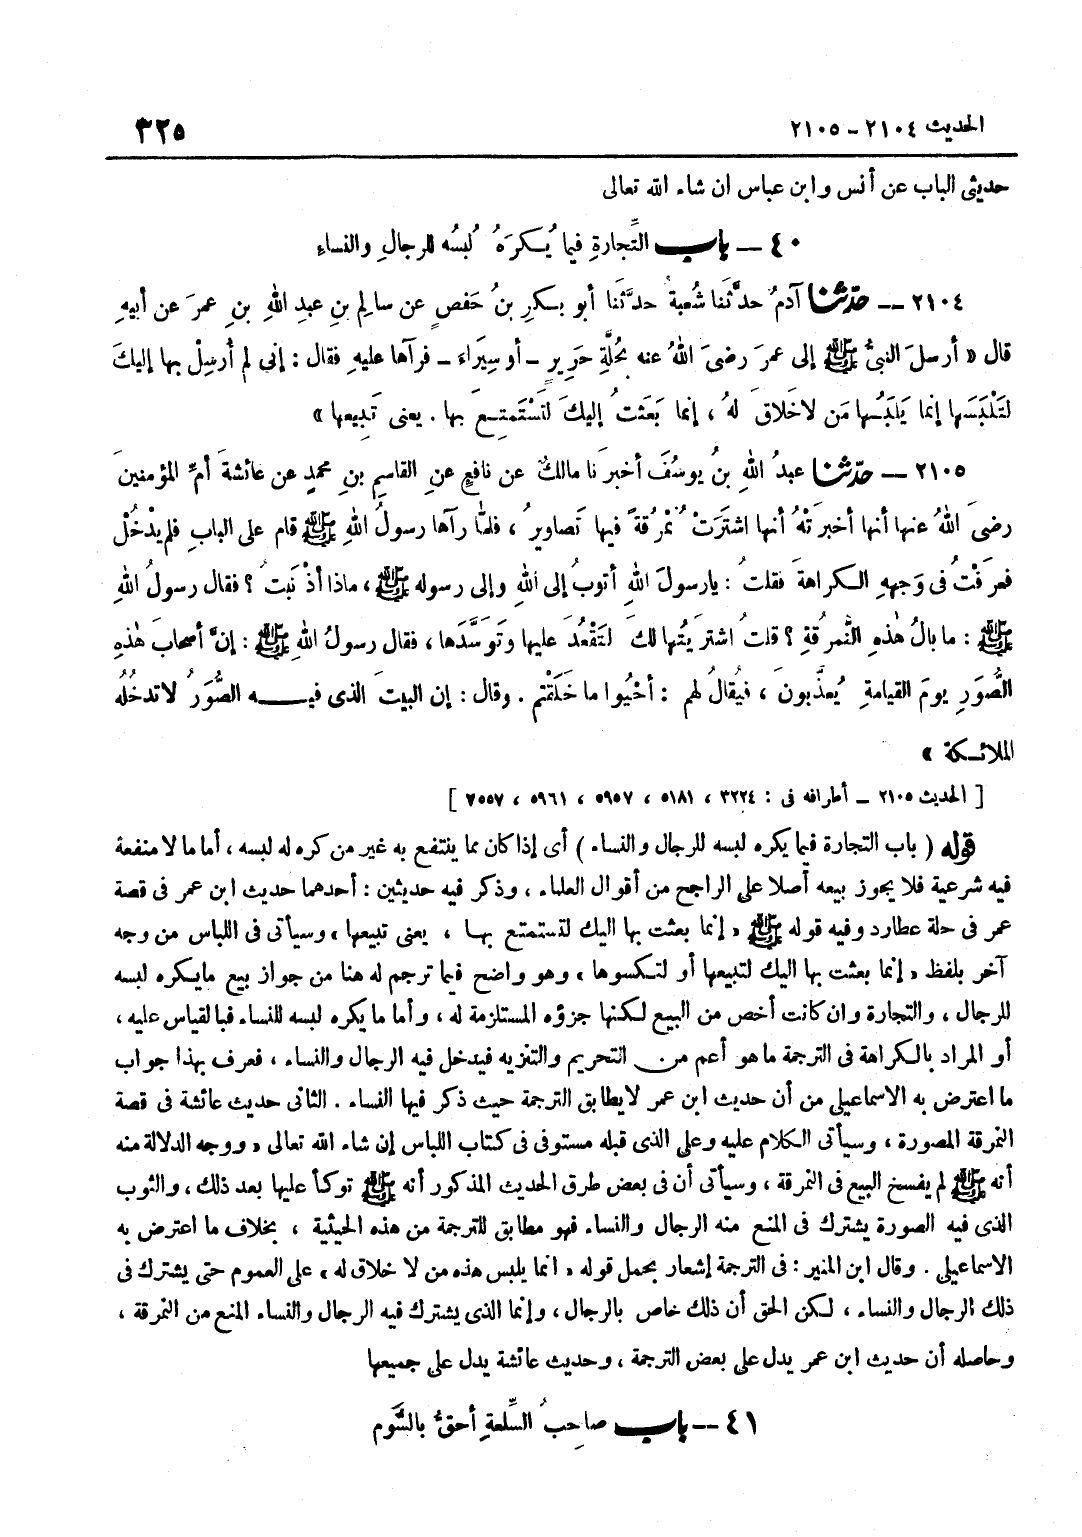 الحديث ٢١٠٤ - ٢١٠٥ ٣٢٥
حديثى الباب عن أنس وابن عباس ان شاء الله تعالى
٤٠ - باب التِّجارةِ فيما يُكرَهُ لُبسُه للرجالِ والنساءِ
٢١٠٤ - حدّثنا آدمُ حدَّثَنا شُعبةُ حدَّثَنا أبو بكرِ بنُ حَفصٍ عن سالمِ بنِ عبدِ اللهِ بنِ عمرَ عن أبيهِ
قال « أرسلَ النبيُّ ﷺ إلى عمرَ رضىَ اللهُ عنه بحُلَّةِ حَريرٍ - أو سِيَراءَ - فرآها عليهِ فقال : إنى لم أُرسِلْ بها إليكَ
لتَلْبَسَها إنما يَلبَسُها مَن لاخَلاقَ لهُ ، إنما بَعَثتُ إليكَ لتَسْتَمتِعَ بها . يعنى تَبِيعها »
٢١٠٥ - حدّثنا عبدُ اللهِ بنُ يوسُفَ أخبرَنا مالكٌ عن نافعٍ عنِ القاسمِ بنِ محمدٍ عن عائشةَ أمِّ المؤمنينَ
رضىَ اللهُ عنها أنها أخبرَتْهُ أنها اشترَتْ نُمْرُقةً فيها تَصاويرُ ، فلمّا رآها رسولُ اللهِ ﷺ قام على البابِ فلم يدْخُلْ
فعرَفْتُ فى وَجههِ الكراهةَ فقلتُ : يارسولَ اللهِ أتوبُ إلى اللهِ وإلى رسوله ﷺ ، ماذا أذْنَبتُ ؟ فقال رسولُ اللهِ
ﷺ : ما بالُ هٰذهِ النُّمرُقةِ ؟ قلتُ اشتريتُها لكَ لتَقْعُدَ عليها وتَوَسَّدَها ، فقال رسولُ اللهِ ﷺ : إنَّ أصحابَ هٰذهِ
الصُّوَرِ يومَ القيامةِ يُعذَّبونَ ، فيُقالُ لهم : أحْيُوا ما خَلَقْتم . وقال : إن البيتَ الذى فيه الصُّوَرُ لاتدخُلُه
الملائكة »
[ الحديث ٢١٠٥ - أطرافه فى : ٣٢٢٤ ، ٥١٨١ ، ٥٩٥٧ ، ٥٩٦١ ، ٧٥٥٧ ]
قوله ( باب التجارة فيما يكره لبسه للرجال والنساء ) أى إذا كان مما ينتفع به غير من كره له لبسه ، أما ما لا منفعة
فيه شرعية فلا يجوز بيعه أصلا على الراجح من أقوال العلماء ، وذكر فيه حديثين : أحدهما حديث ابن عمر فى قصة
عمر فى حلة عطارد وفيه قوله ﷺ « إنما بعثت بها اليك لتستمتع بها ، يعنى تبيعها » وسيأتى فى اللباس من وجه
آخر بلفظ « إنما بعثت بها اليك لتبيعها أو لتكسوها » وهو واضح فيما ترجم له هنا من جواز بيع مايكره لبسه
للرجال ، والتجارة وان كانت أخص من البيع لكنها جزؤه المستلزمة له ، وأما ما يكره لبسه للنساء فبالقياس عليه ،
أو المراد بالكراهة فى الترجمة ما هو أعم من التحريم والتنزيه فيدخل فيه الرجال والنساء ، فعرف بهذا جواب
ما اعترض به الاسماعيلى من أن حديث ابن عمر لايطابق الترجمة حيث ذكر فيها النساء . الثانى حديث عائشة فى قصة
النمرقة المصورة ، وسيأتى الكلام عليه وعلى الذى قبله مستوفى فى كتاب اللباس إن شاء الله تعالى « ووجه الدلالة منه
أنه ﷺ لم يفسخ البيع فى النمرقة ، وسيأتى أن فى بعض طرق الحديث المذكور أنه ﷺ توكأ عليها بعد ذلك ، والثوب
الذى فيه الصورة يشترك فى المنع منه الرجال والنساء فهو مطابق للترجمة من هذه الحيثية ، بخلاف ما اعترض به
الاسماعيلى . وقال ابن المنير : فى الترجمة إشعار بحمل قوله « انما يلبس هذه من لا خلاق له » على العموم حتى يشترك فى
ذلك الرجال والنساء ، لكن الحق أن ذلك خاص بالرجال ، وإنما الذى يشترك فيه الرجال والنساء المنع من النمرقة ،
وحاصله أن حديث ابن عمر يدل على بعض الترجمة ، وحديث عائشة يدل على جميعها
٤١ - باب صاحبُ السِّلعةِ أحقُّ بالسَّوم